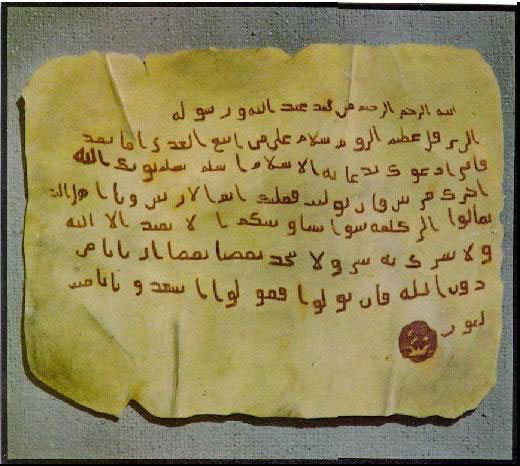 بسم الله الرحمن الرحيم من محمد عبد الله ورسوله
الى هرقل عظيم الروم سلام على من اتبع الهدى اما بعد
فانى ادعوك بدعاية الاسلام اسلم تسلم يوتك الله
اجرك مرتين فان توليت فعليك اثم الاريسين ويا اهل الكت
تعالوا الى كلمة سوا بيننا وبينكم الا نعبد الا الله
ولا نشرك به شيا ولا يتخذ بعضنا بعضا اربابا من
دون الله فان تولوا فقولوا اشهدوا بانا مس
لمون